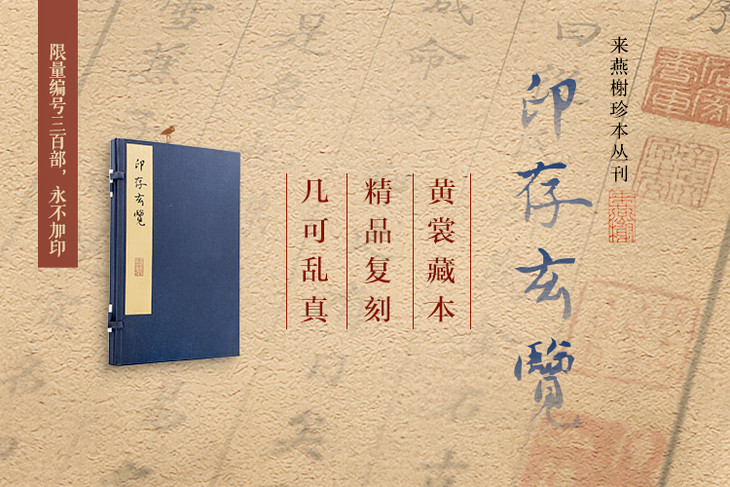 来燕榭珍本丛刊
印存玄覽
黄裳藏本
精品复刻
几可乱真
印存玄覽
限量编号三百部，永不加印